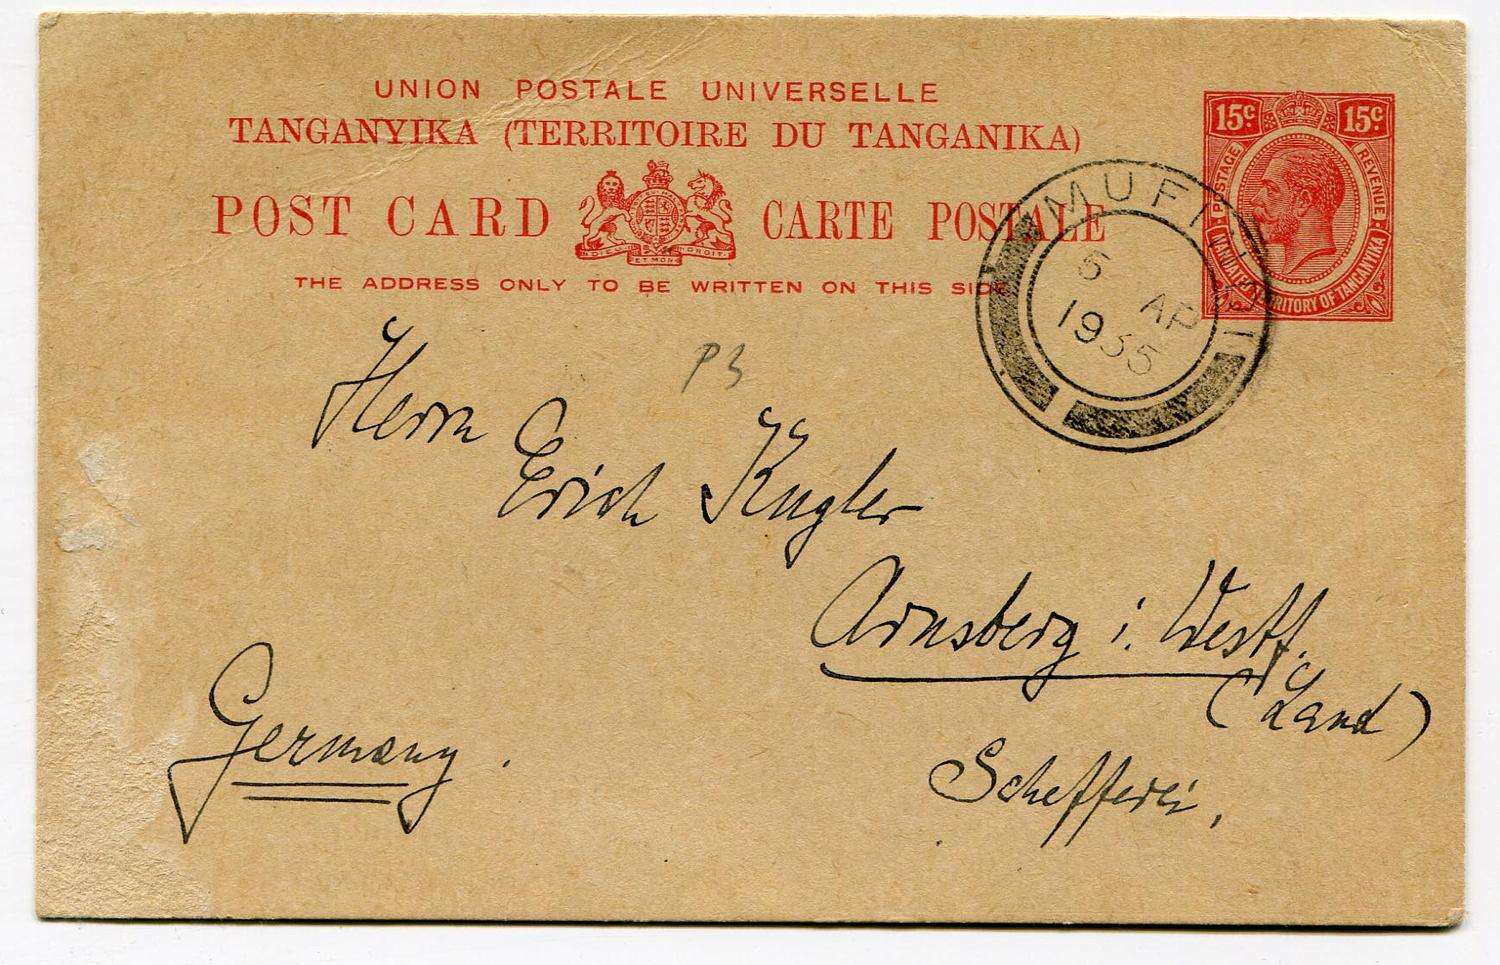 UNION POSTALE UNIVERSELLE
TANGANYIKA (TERRITOIRE DU TANGANIKA)
POST CARD CARTE POSTALE
DIEU ET MON DROIT
THE ADDRESS ONLY TO BE WRITTEN ON THIS SIDE.
15c 15c
POSTAGE REVENUE
MANDATED TERRITORY OF TANGANYIKA
MUFINDI
5 AP
1935
P3
Herrn
Erich Kugler
Arnsberg i. Westf.
(Land)
Schefferei,
Germany.